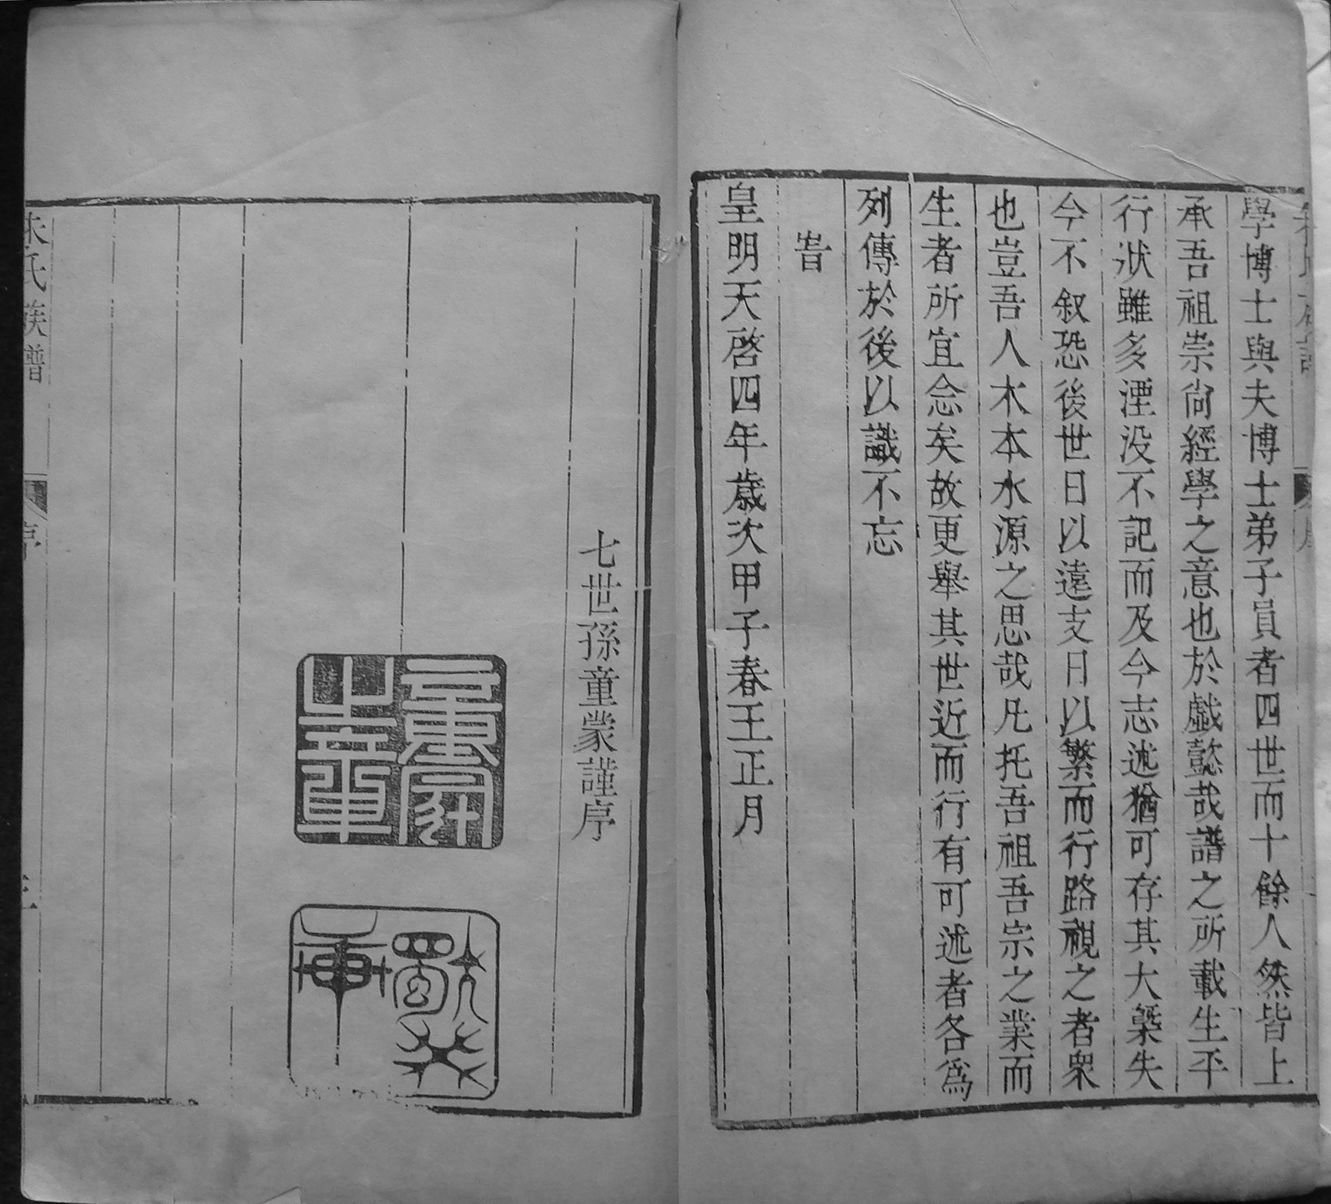 學博士與夫博士弟子員者四世而十餘人然皆上
承吾祖崇尚經學之意也於戲懿哉譜之所載生平
行狀雖多湮没不記而及今志述猶可存其大槩失
今不叙恐後世日以遠支日以繁而行路視之者衆
也豈吾人木本水源之思哉凡托吾祖吾宗之業而
生者所宜念矣故更舉其世近而行有可述者各為
列傳於後以識不忘
旹
皇明天啓四年歲次甲子春王正月
七世孫童蒙謹序
之章
氏族譜
序